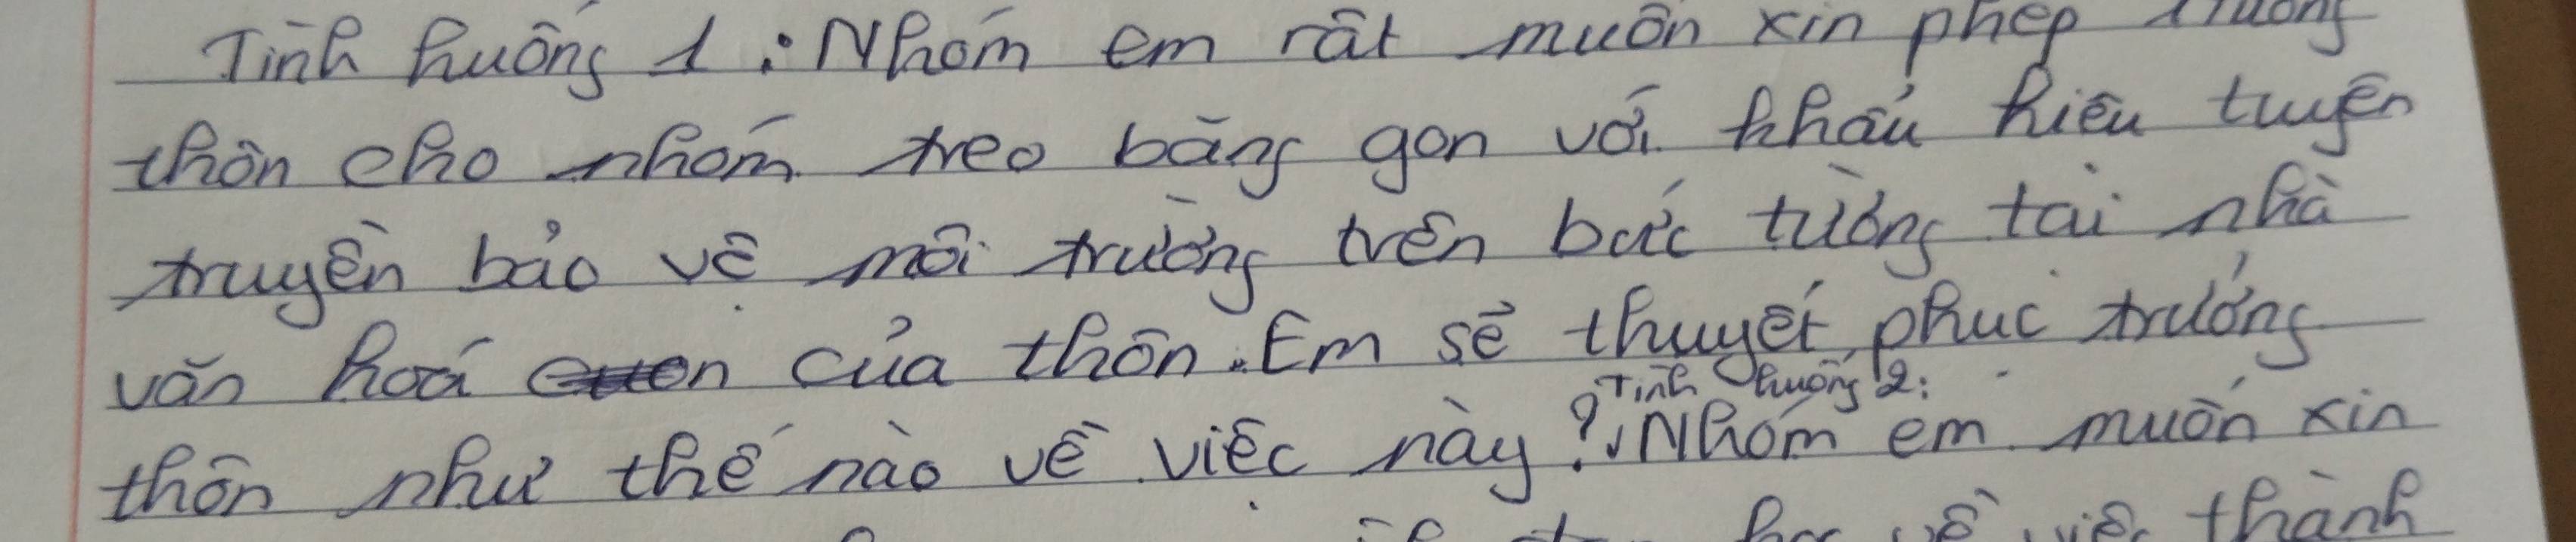 Tình huống 1 : Nhóm em rất muốn xin phép trưởng
thôn cho nhóm treo băng gon với khẩu hiệu tuyên
truyền bảo vệ môi trường trên bức tường tại nhà
văn hoá của thôn. Em sẽ thuyết phục trưởng
Tình huống 2:
thôn như thế nào về việc này ? Nhóm em muốn xin
học về việc thành